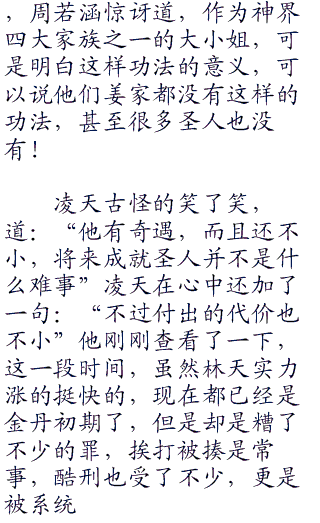 ，周若涵惊讶道，作为神界
四大家族之一的大小姐，可
是明白这样功法的意义，可
以说他们姜家都没有这样的
功法，甚至很多圣人也没
有！
凌天古怪的笑了笑，
道：“他有奇遇，而且还不
小，将来成就圣人并不是什
么难事”凌天在心中还加了
一句：“不过付出的代价也
不小”他刚刚查看了一下，
这一段时间，虽然林天实力
涨的挺快的，现在都已经是
金丹初期了，但是却是糟了
不少的罪，挨打被揍是常
事，酷刑也受了不少，更是
被系统